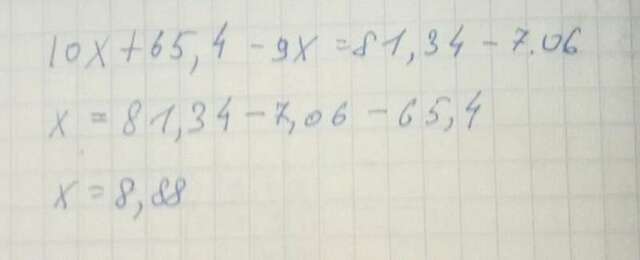 10x+65,4-9x=81,34-7.06
x=81,34-7,06-65,4
x=8,88